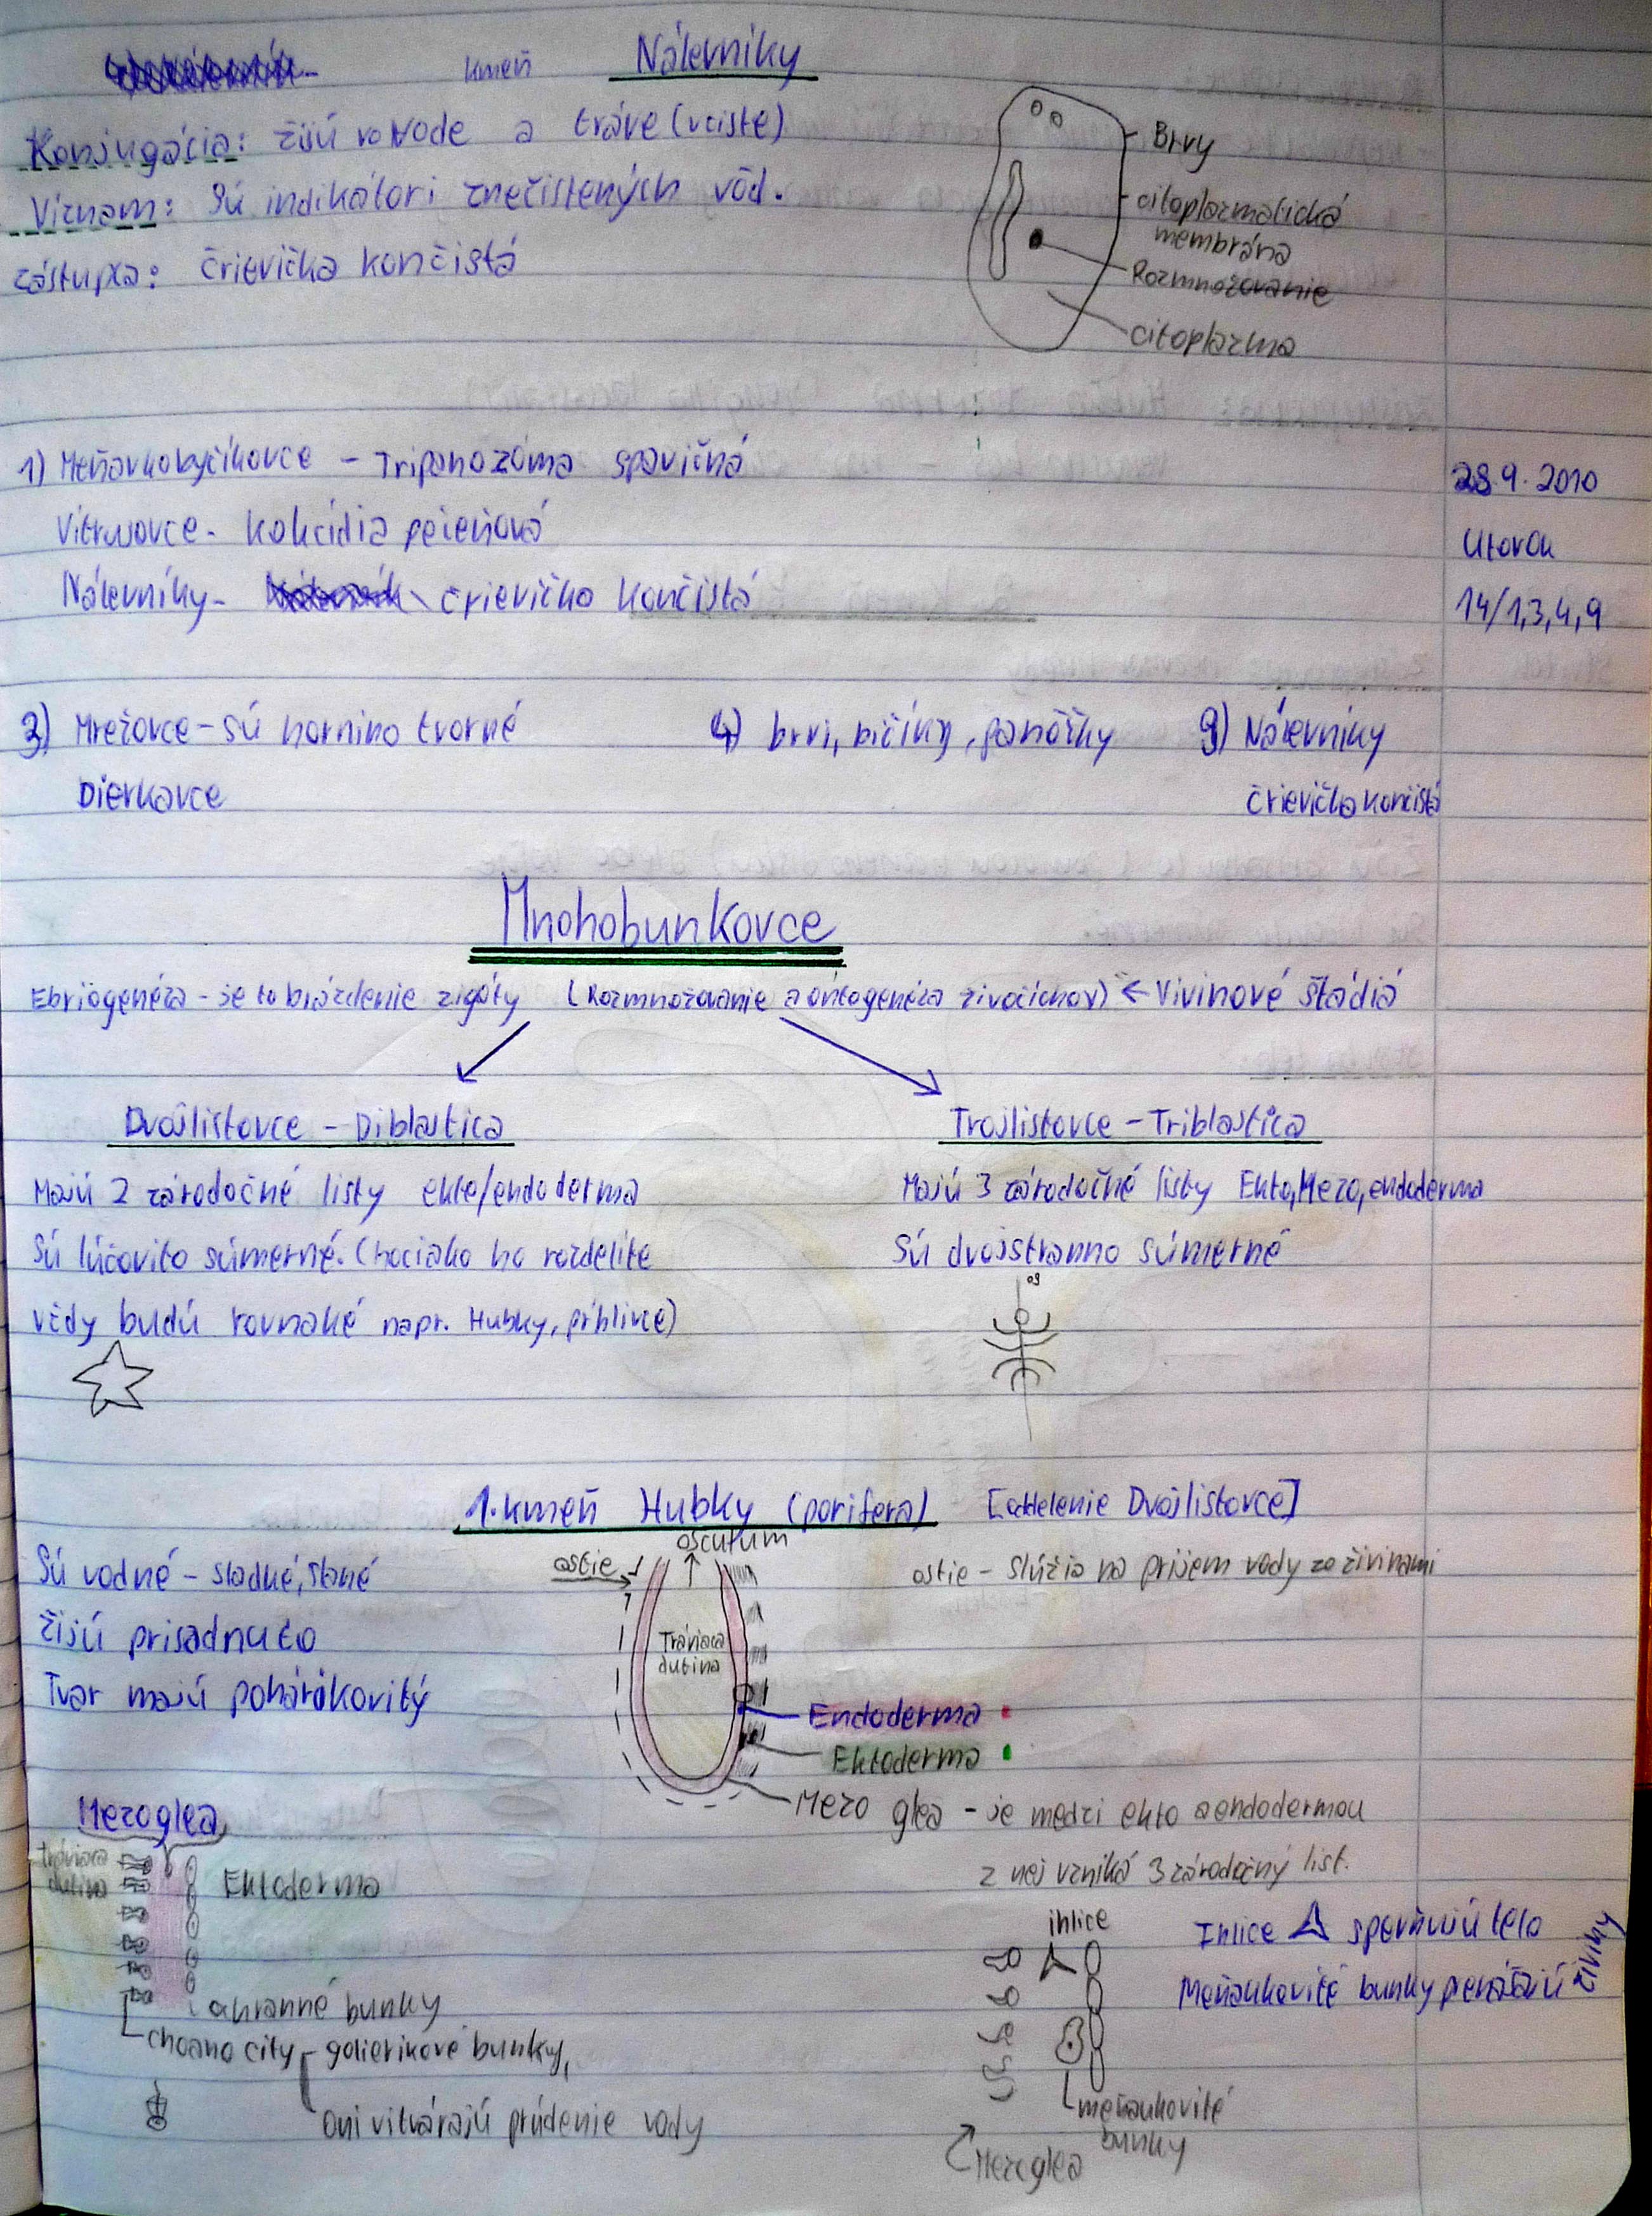 kmeň Nálevníky
Konjugácia: žijú vo vode a tráve (vciste)
Víznam: Sú indikátori znečistených vôd.
zástupxa: črievička končistá
Brvy
citoplazmatická
membrána
Rozmnožovanie
citoplazma
1) Meňavkobyčíkovce - Tripanozóma spavičná
Vítrusovce - kokcídia pečeňová
Nálevníky - črievičko končistá
28.9.2010
Utorok
14/1,3,4,9
3) Mrežovce - sú hornino tvorné
Dierkavce
4) brvi, bičíky, panôžky
9) Nálevníky
črievička končistá
Mnohobunkovce
Ebriogenéza - je to brázdenie zigóty (Rozmnožovanie a ontogenéza živočíchov) ← Vivinové štádiá
Dvojlistovce - Diblastica
Majú 2 zárodočné listy ekto/endoderma
Sú lúčovito súmerné. (hociako ho rozdelíte
vždy budú rovnaké napr. Hubky, pŕhlivce)
Trojlistovce - Triblastica
Majú 3 zárodočné listy Ekto, Mezo, endoderma
Sú dvojstranno súmerné
os
1. kmeň Hubky (porifera) [oddelenie Dvojlistovce]
Sú vodné - sladké, slané
žijú prisadnuto
Tvar majú pohárikovitý
ostie
oscutum
Tráviaca
dutina
ostie - slúžia na príjem vody zo živinami
Endoderma
Ektoderma
Mezo glea - je medzi ekto a endodermou
z nej vzniká 3 zárodočný list.
Mezoglea
tráviaca
dutina
Ektoderma
ochranné bunky
choano city - golierikové bunky,
oni vitvárajú prúdenie vody
ihlice
meňavkovité
bunky
Mezoglea
Ihlice spevňujú telo
Meňavkovité bunky prenášajú živiny